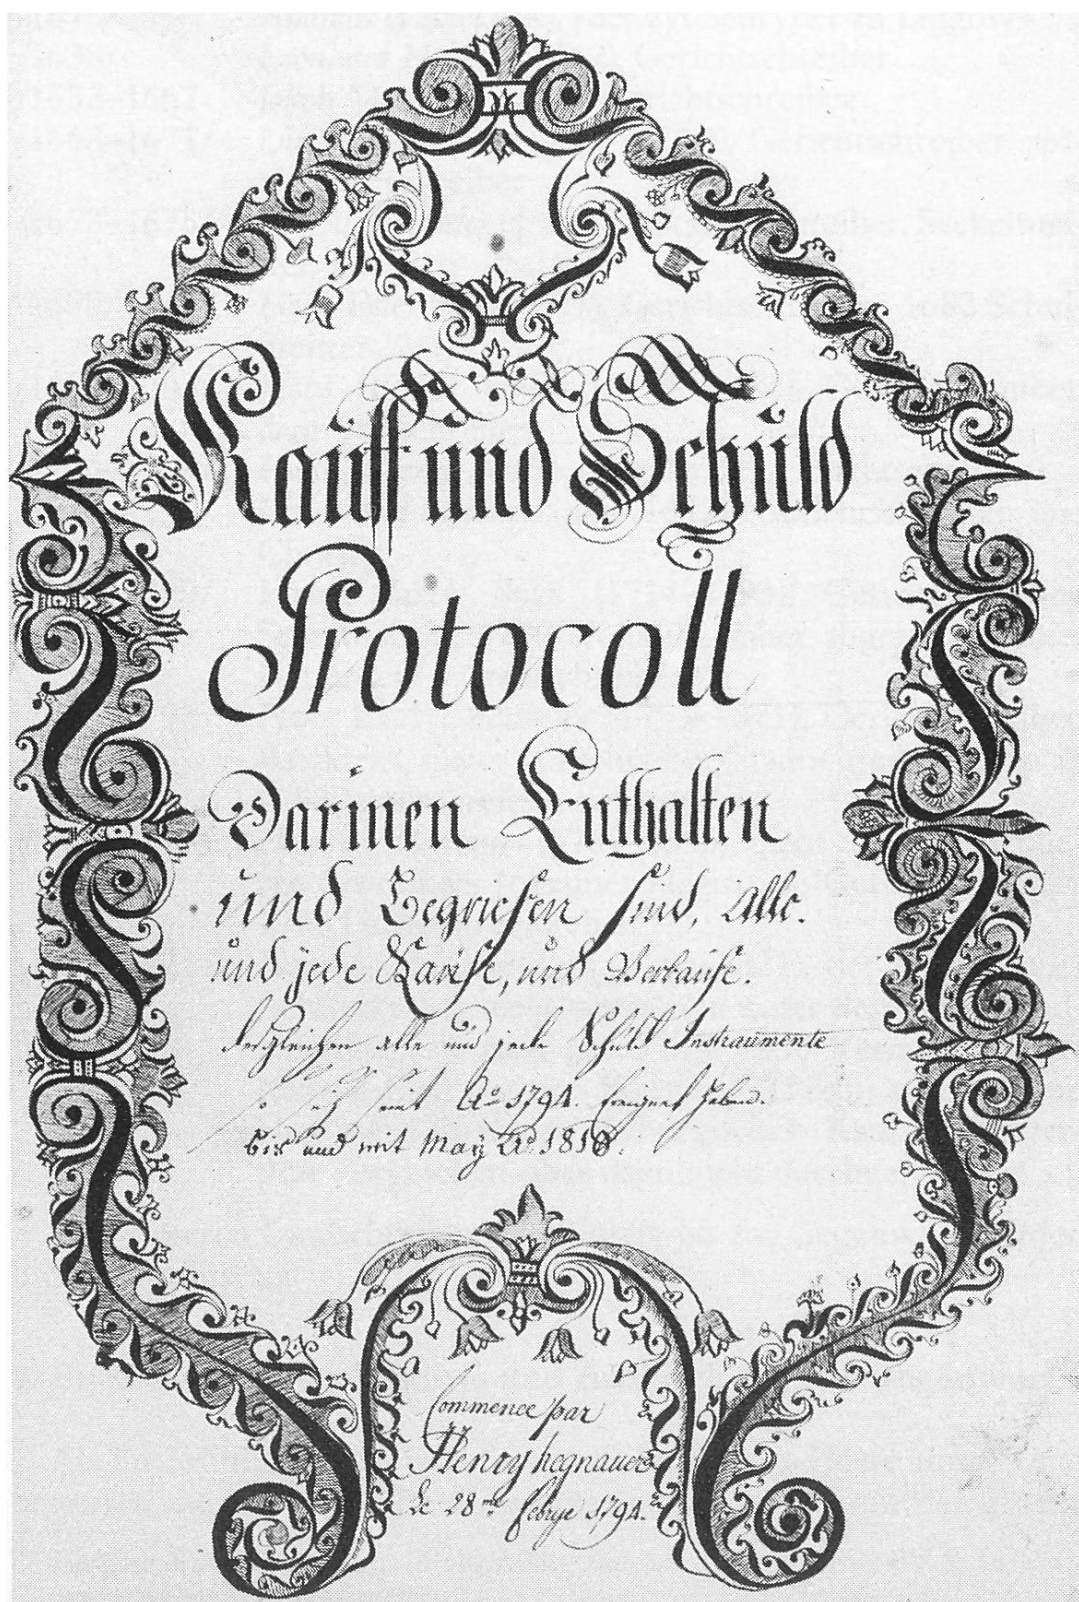 Kauff und Schuld
Protocoll
Darinen Enthalten
und Begriefen sind, Alle.
und jede Kaüfe, und Verkaüfe.
dergleichen alle und jede Schuld Instraumente
so sich seint Aº 1794. Ereignet haben.
bis und mit May Aº 1810.
Commence par
Henry hegnauer
Le 28me febrye 1794.